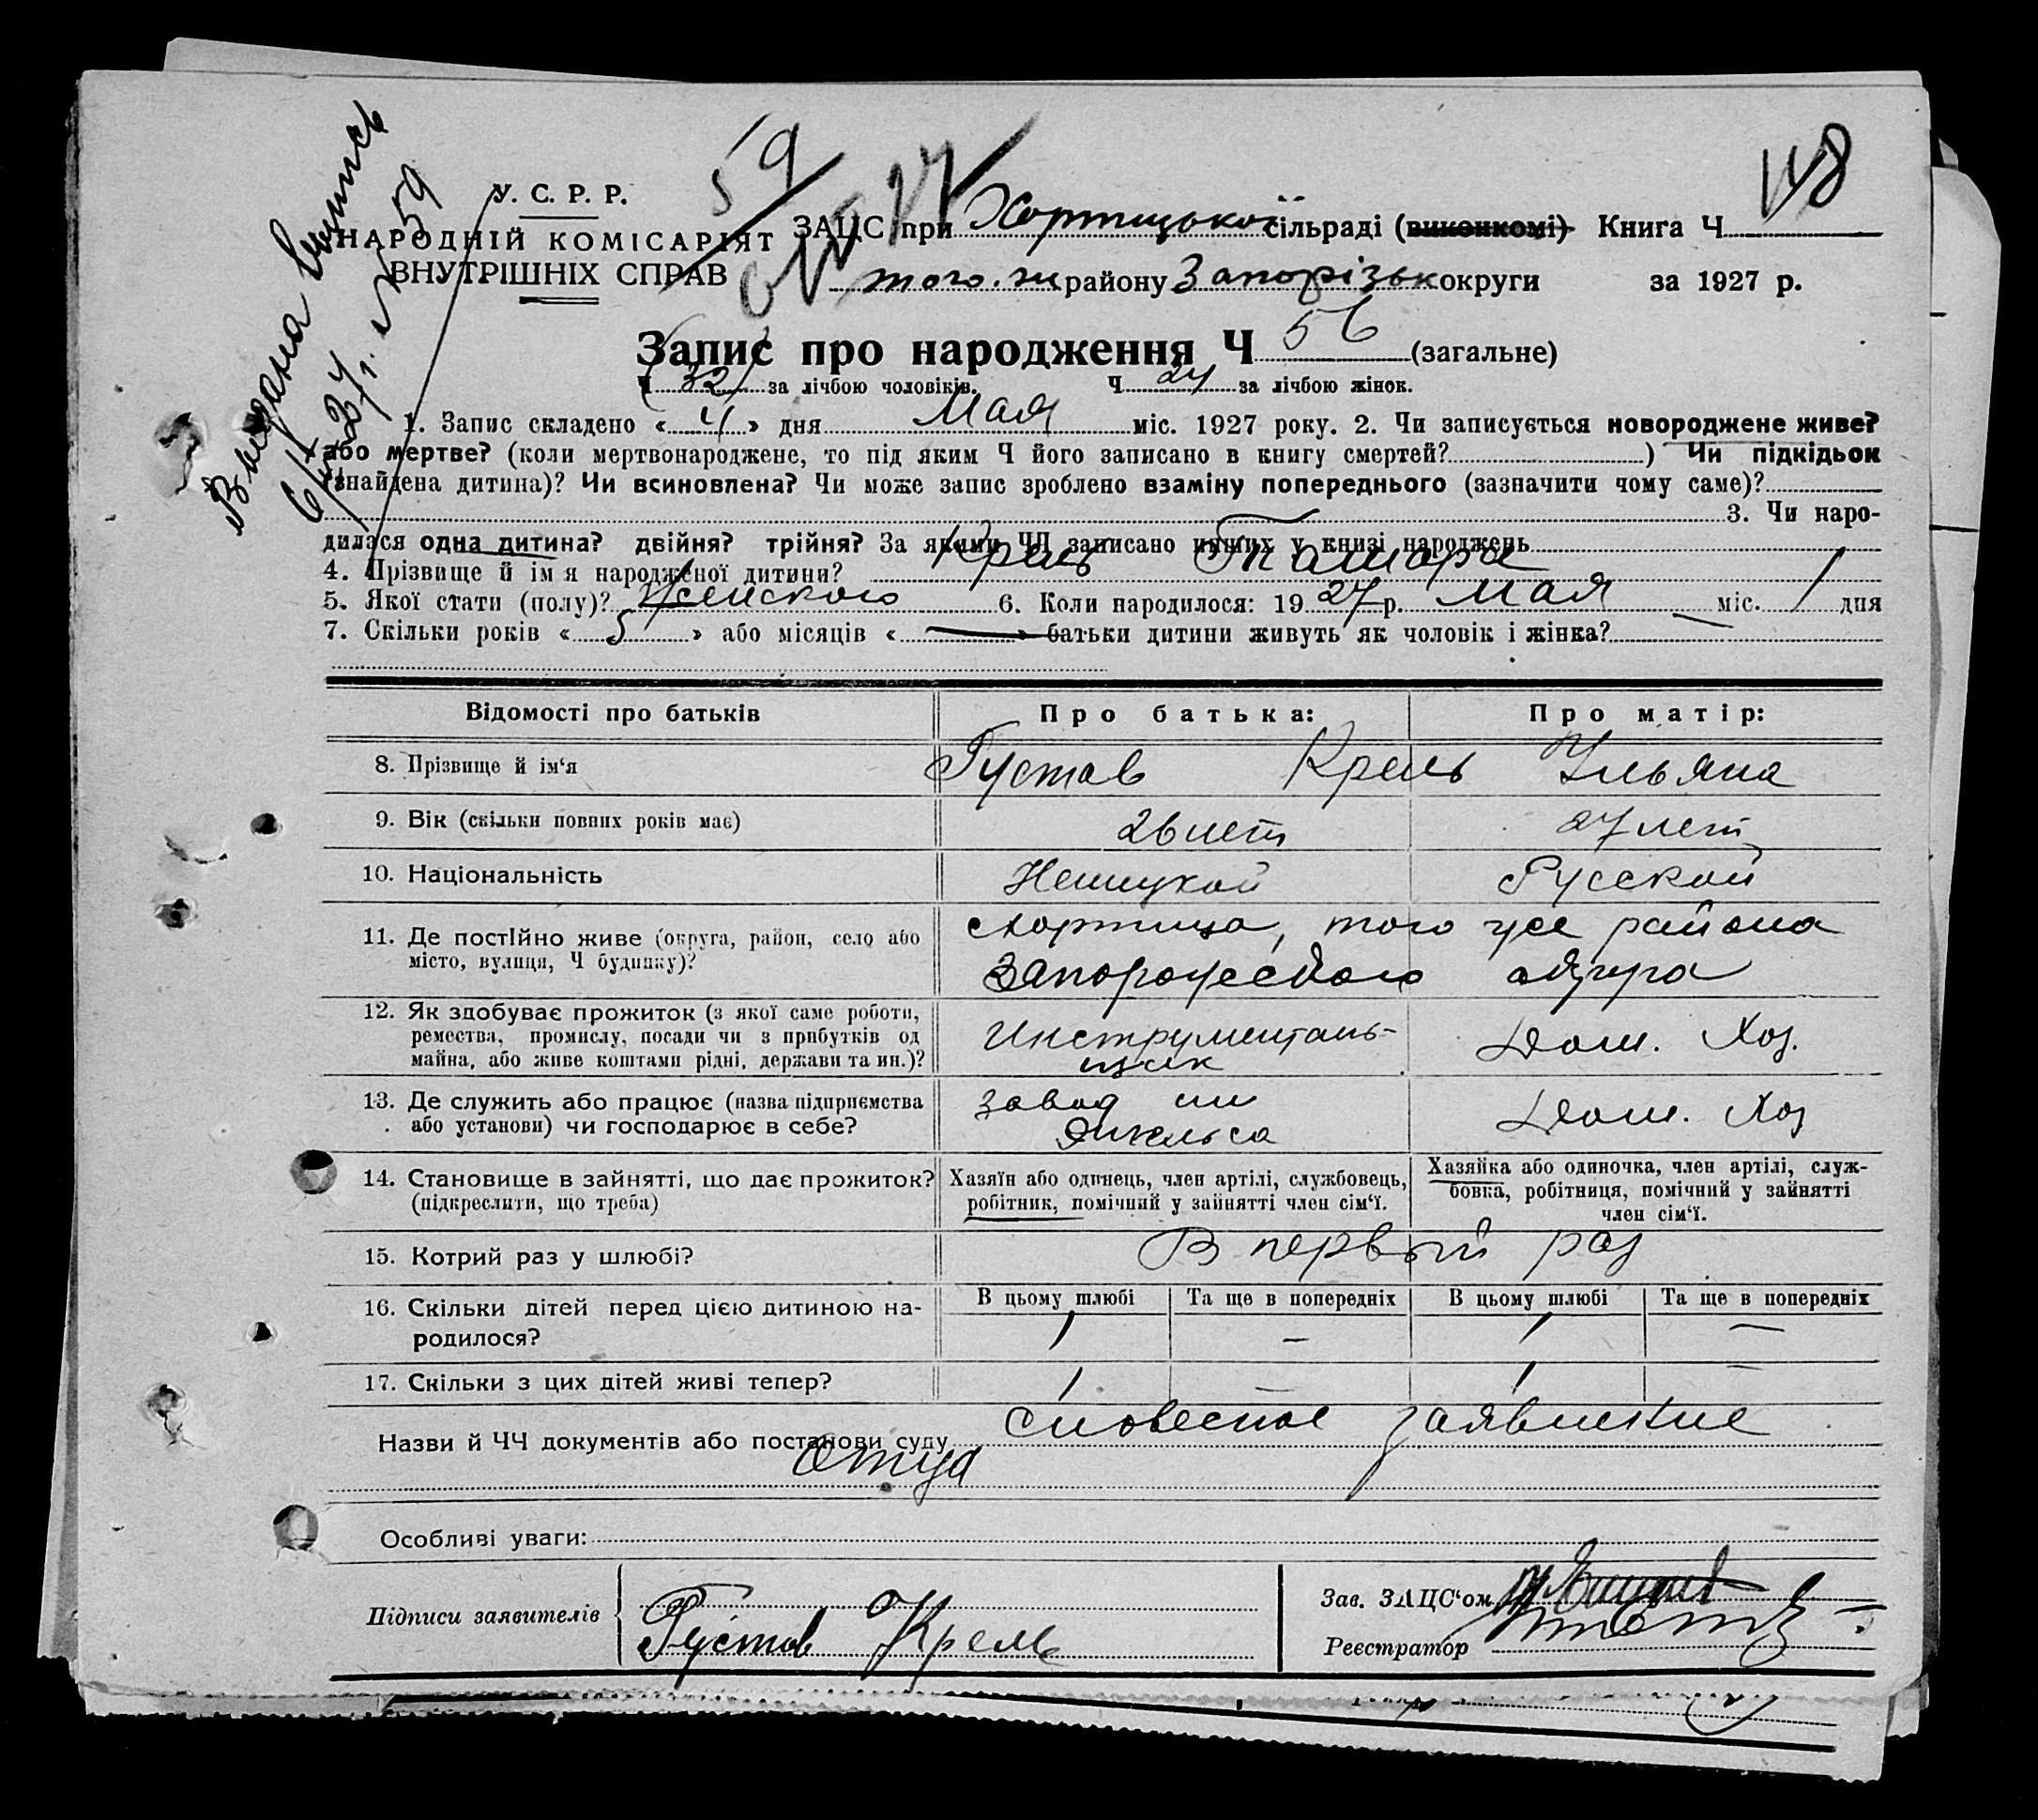 Выдана выпись
6/V 27 г. № 59
59
148
У. С. Р. Р.
НАРОДНІЙ КОМІСАРІЯТ
ВНУТРІШНІХ СПРАВ
ЗАЦС при Хортицькой сільраді (виконкомі) Книга Ч
того. ж району Запорізьк округи за 1927 р.
Запис про народження Ч 56 (загальне)
Ч 32 за лічбою чоловіків. Ч 24 за лічбою жінок.
1. Запис складено « 4 » дня Мая міс. 1927 року. 2. Чи записується новороджене живе?
або мертве? (коли мертвонароджене, то під яким Ч його записано в книгу смертей? ) Чи підкідьок
(знайдена дитина)? Чи всиновлена? Чи може запис зроблено взаміну попереднього (зазначити чому саме)?
3. Чи наро-
дилася одна дитина? двійня? трійня? За якими ЧЧ записано инших у книзі народжень
4. Прізвище й ім я народженої дитини? Крель Тамара
5. Якої стати (полу)? Женского 6. Коли народилося: 19 27 р. Мая міс. 1 дня
7. Скільки років « 5 » або місяців « — » батьки дитини живуть як чоловік і жінка?
Відомості про батьків Про батька: Про матір:
8. Прізвище й ім‘я Густав Крель Ульяна
9. Вік (скільки повних років має) 26 лет 27 лет
10. Національність Немецкой Русской
11. Де постійно живе (округа, район, село або Хортица, того же района
місто, вулиця, Ч будинку)? Запорожского округа
12. Як здобуває прожиток (з якої саме роботи,
ремества, промислу, посади чи з прибутків од Инструменталь- Дом. Хоз.
майна, або живе коштами рідні, держави та ин.)? щик
13. Де служить або працює (назва підприємства завод им Дом. Хоз
або установи) чи господарює в себе? Энгельса
14. Становище в зайнятті, що дає прожиток? Хазяїн або одинець, член артілі, службовець, Хазяйка або одиночка, член артілі, служ-
(підкреслити, що треба) робітник, помічний у зайнятті член сім‘ї. бовка, робітниця, помічний у зайнятті
член сім‘ї.
15. Котрий раз у шлюбі? В первый раз
В цьому шлюбі Та ще в попередніх В цьому шлюбі Та ще в попередніх
16. Скільки дітей перед цією дитиною на-
родилося? 1 — 1 —
17. Скільки з цих дітей живі тепер? 1 — 1 —
Назви й ЧЧ документів або постанови суду словесное заявление
отца
Особливі уваги:
Підписи заявителів Густав Крель
Зав. ЗАЦС‘ом
Реєстратор